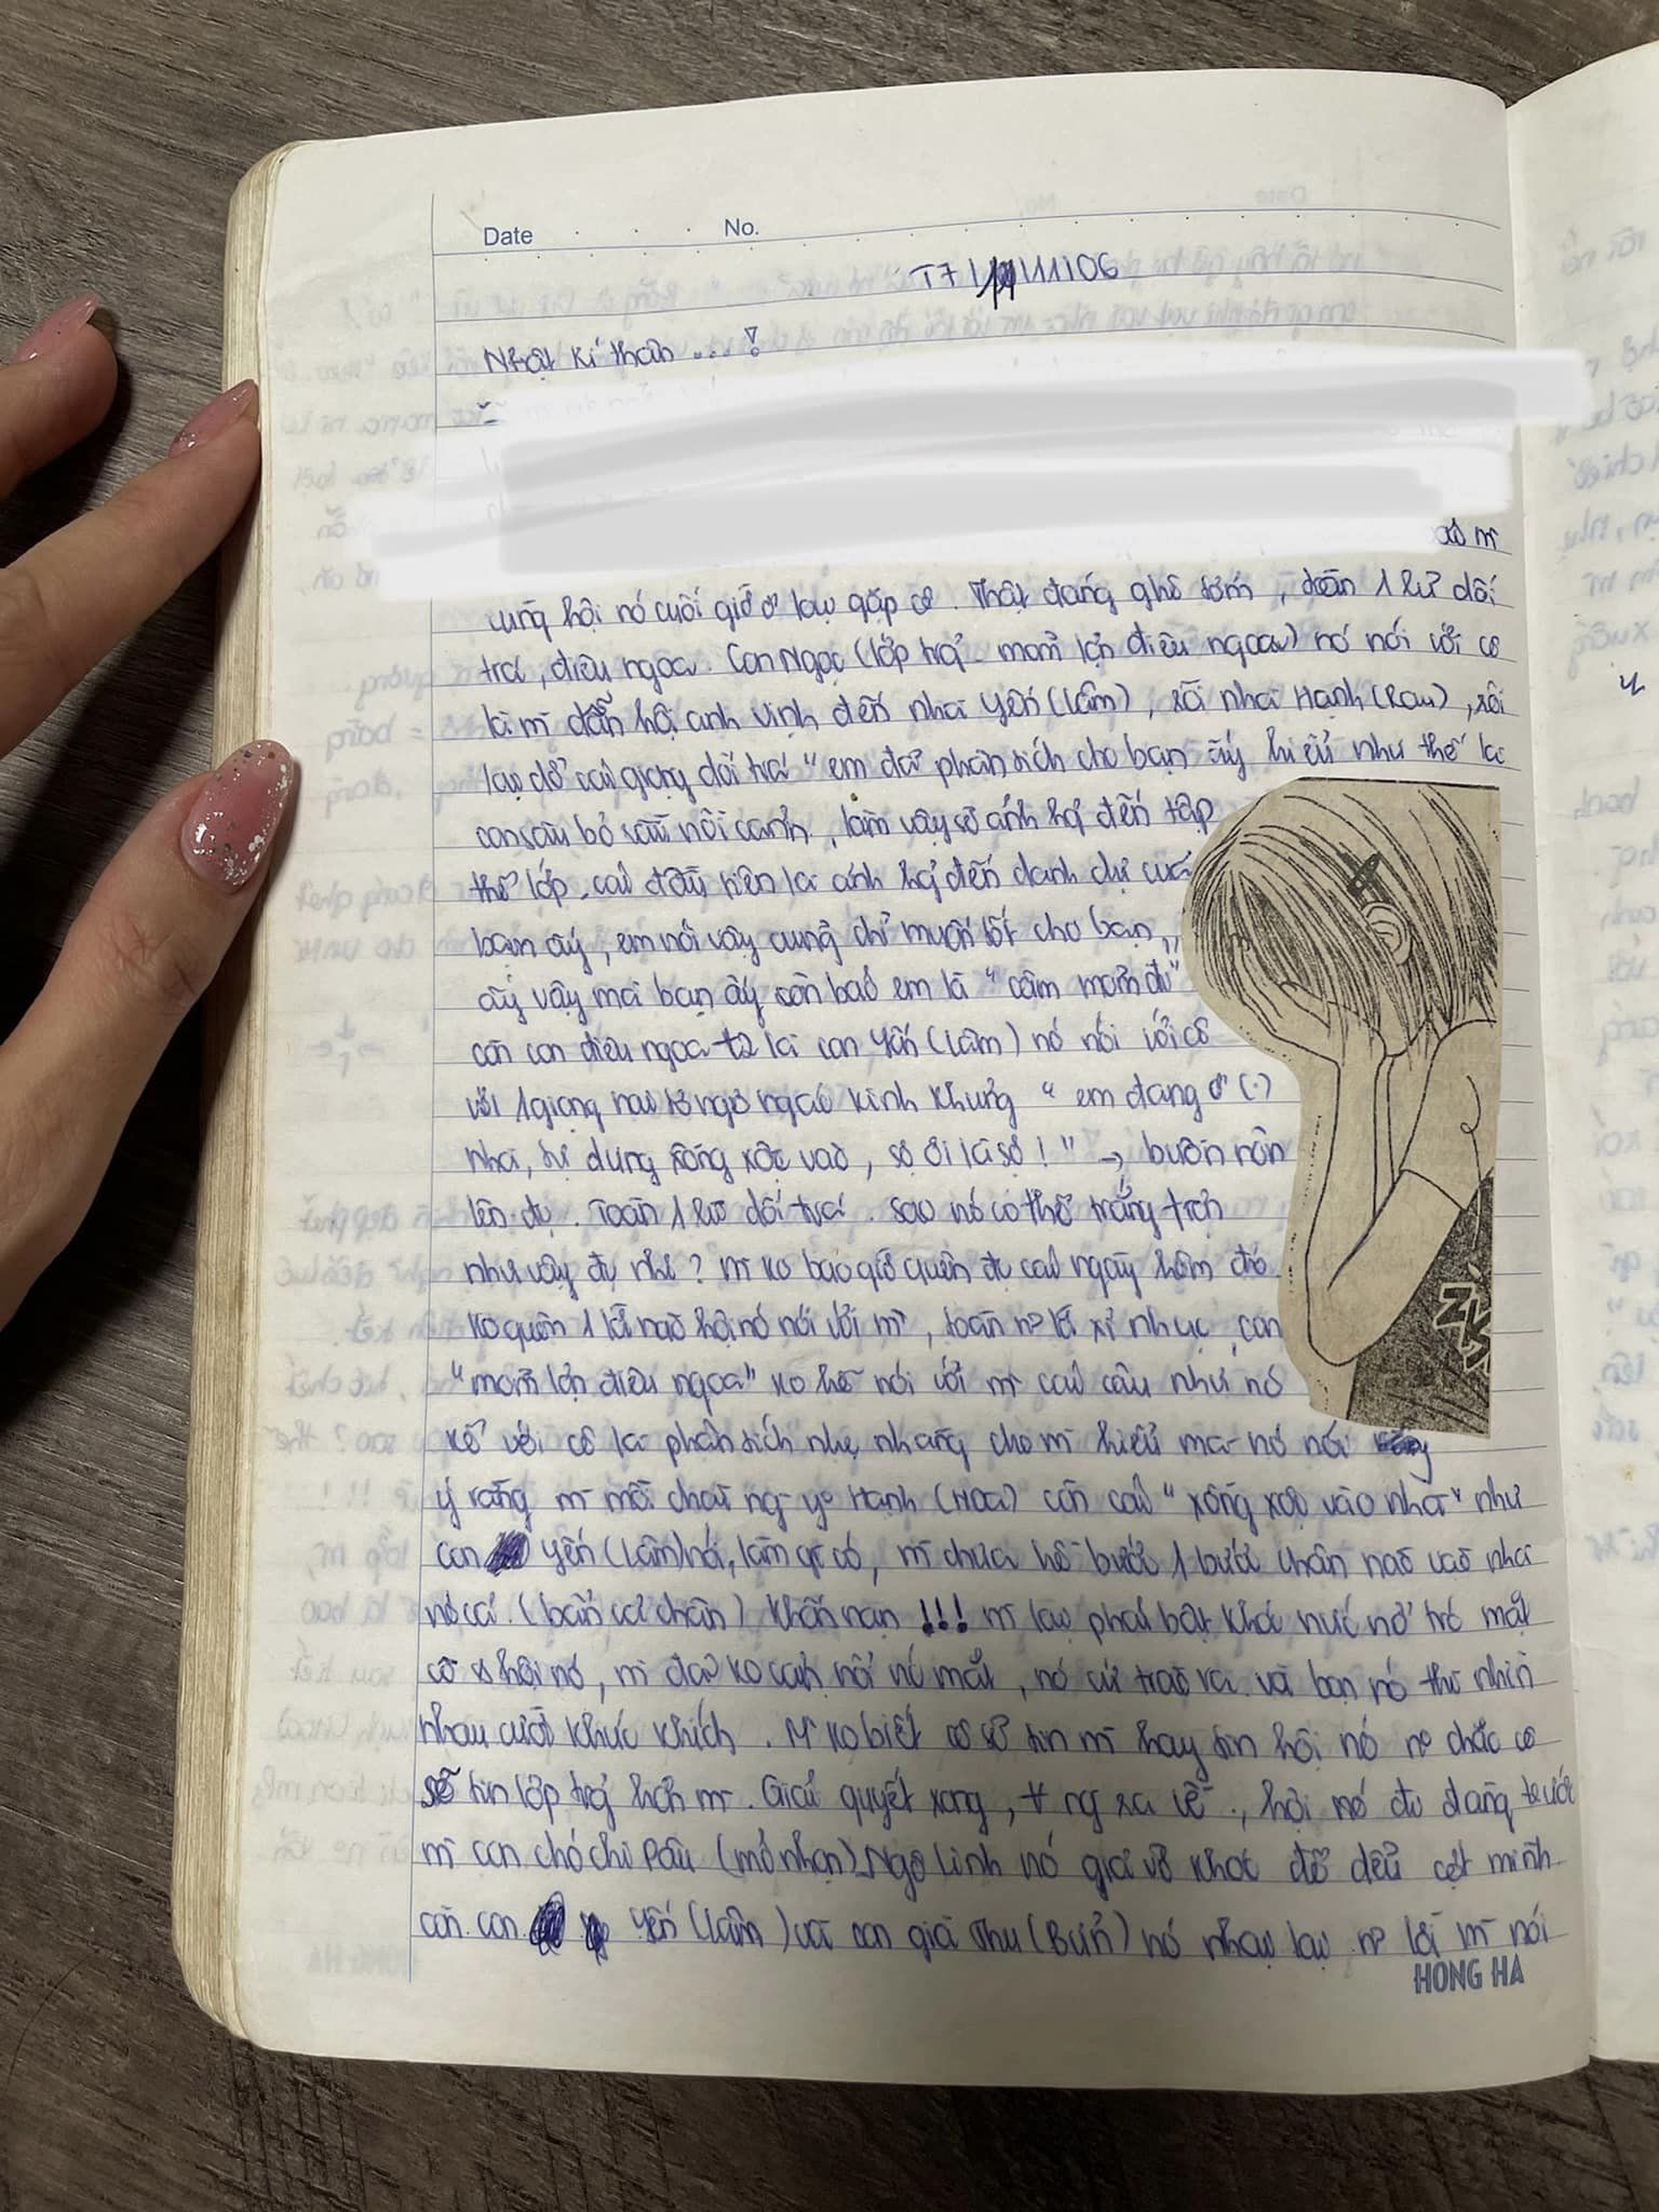 Date No.
T7 1/11/06
Nhật kí thân ... !
cùng hội nó cuối giờ ở lại gặp cô. Thật đáng ghê tởm, toàn 1 lũ dối
trá, điêu ngoa. Con Ngọc (lớp trg - mồm lợn điêu ngoa) nó nói với cô
là mì dẫn hội anh Vinh đến nhà Yến (Lâm), rồi nhà Hạnh (Rau), rồi
lại dở cái giọng dối trá "em đã phân tích cho bạn ấy hiểu như thế là
con sâu bỏ rầu nồi canh, làm vậy sẽ ảnh hg đến tập
thể lớp, cái đầu tiên là ảnh hg đến danh dự của
bạn ấy, em nói vậy cũng chỉ muốn tốt cho bạn
ấy vậy mà bạn ấy còn bảo em là "câm mồm đi"
còn con điêu ngoa t2 là con Yến (Lâm) nó nói với cô
với 1 giọng nai tơ ngơ ngác kinh khủng "em đang ở (.)
nhà, tự dưng xông xộc vào, sợ ơi là sợ!" → buồn nôn
lên đc. Toàn 1 lũ dối trá. Sao nó có thể trắng trợn
như vậy đc nhỉ? m ko bao giờ quên đc cái ngày hôm đó
ko quên 1 lời nào hội nó nói với m, toàn n~ lời xỉ nhục, con
"mồm lợn điêu ngoa" ko hề nói với m cái câu như nó
kể với cô là phân tích nhẹ nhàng cho m hiểu mà nó nói
ý rằng m mồi chài ng yo Hạnh (Hoa) còn cái "xông xộc vào nhà" như
con Yến (Lâm) nói, làm gì có, m chưa hề bước 1 bước chân nào vào nhà
nó cả. (bẩn cả chân) khốn nạn !!! m lại phải bật khóc nức nở trc mặt
cô & hội nó, m đã ko cạnh nổi nc mắt, nó cứ trào ra và bọn nó thì nhìn
nhau cười khúc khích. M ko biết cô sẽ tin m hay tin hội nó n~ chắc cô
sẽ tin lớp trg hơn m. Giải quyết xong, ra về, hội nó đi đằng trước
m con chó chi Pâu (mỏ nhọn) Ngô Linh nó giả vờ khóc để dểu cợt mình
còn con Yến (Lâm) và con già Thu (Bủn) nó nhại lại n~ lời m nói
HONG HA